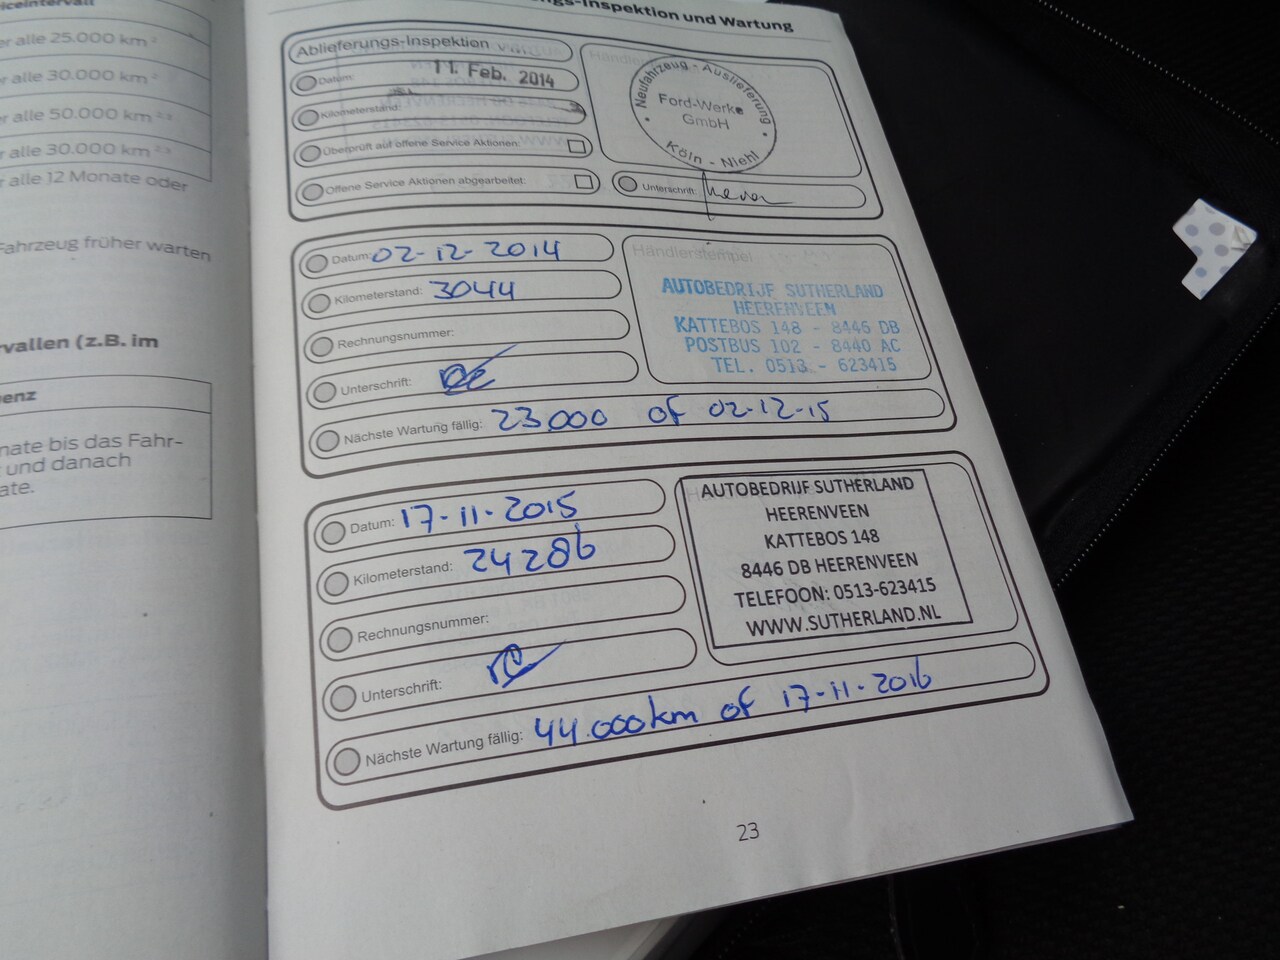 er alle 25.000 km ²
er alle 30.000 km ²
er alle 50.000 km ²·³
er alle 30.000 km ²·³
r alle 12 Monate oder
Fahrzeug früher warten
rvallen (z.B. im
enz
nate bis das Fahr-
und danach
ate.
gs-Inspektion und Wartung
Ablieferungs-Inspektion
Datum: 11. Feb. 2014
Kilometerstand:
Überprüft auf offene Service Aktionen:
Offene Service Aktionen abgearbeitet:
Neufahrzeug - Auslieferung
Ford-Werke
GmbH
Köln - Niehl
Unterschrift:
Datum: 02-12-2014
Kilometerstand: 3044
Rechnungsnummer:
Unterschrift:
Nächste Wartung fällig: 23.000 of 02-12-15
Händlerstempel
AUTOBEDRIJF SUTHERLAND
HEERENVEEN
KATTEBOS 148 - 8446 DB
POSTBUS 102 - 8440 AC
TEL. 0513 - 623415
Datum: 17-11-2015
Kilometerstand: 24286
Rechnungsnummer:
Unterschrift:
Nächste Wartung fällig: 44.000km of 17-11-2016
AUTOBEDRIJF SUTHERLAND
HEERENVEEN
KATTEBOS 148
8446 DB HEERENVEEN
TELEFOON: 0513-623415
WWW.SUTHERLAND.NL
23